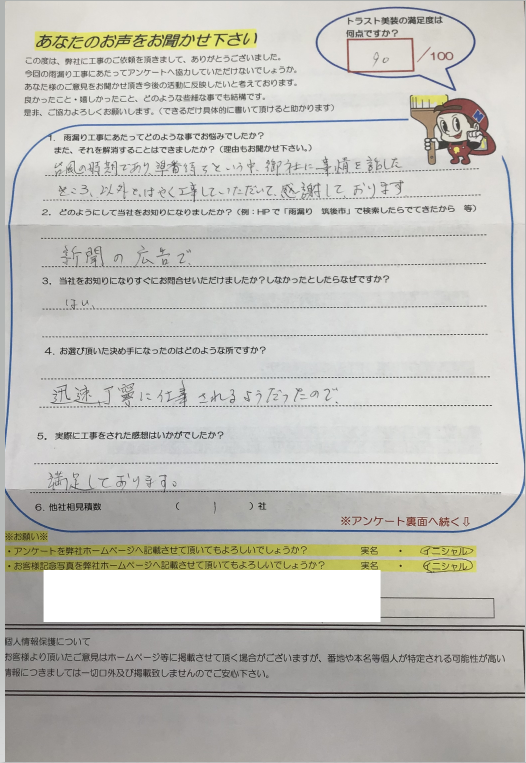 トラスト美装の満足度は
何点ですか？
90 /100
あなたのお声をお聞かせ下さい
この度は、弊社に工事のご依頼を頂きまして、ありがとうございました。
今回の雨漏り工事にあたってアンケートへ協力していただけないでしょうか。
あなた様のご意見をお聞かせ頂き今後の活動に反映したいと考えております。
良かったこと・嬉しかったこと、どのような些細な事でも結構です。
是非、ご協力よろしくお願いします。（できるだけ具体的に書いて頂けると助かります）
1. 雨漏り工事にあたってどのような事でお悩みでしたか？
また、それを解消することはできましたか？（理由もお聞かせ下さい。）
台風の時期であり、準備待ちという中、御社に事情を話した
ところ、以外と、はやく工事していただいて、感謝しております
2. どのようにして当社をお知りになりましたか？（例：HPで「雨漏り 筑後市」で検索したらでてきたから 等）
新聞の広告で、
3. 当社をお知りになりすぐにお問合せいただけましたか？しなかったとしたらなぜですか？
はい、
4. お選び頂いた決め手になったのはどのような所ですか？
迅速、丁寧に仕事されるようだったので、
5. 実際に工事をされた感想はいかがでしたか？
満足しております。
6. 他社相見積数 （ 1 ）社
※アンケート裏面へ続く⇩
※お願い※
・アンケートを弊社ホームページへ記載させて頂いてもよろしいでしょうか？ 実名 ・ イニシャル
・お客様記念写真を弊社ホームページへ記載させて頂いてもよろしいでしょうか？ 実名 ・ イニシャル
個人情報保護について
お客様より頂いたご意見はホームページ等に掲載させて頂く場合がございますが、番地や本名等個人が特定される可能性が高い
情報につきましては一切口外及び掲載致しませんのでご安心下さい。